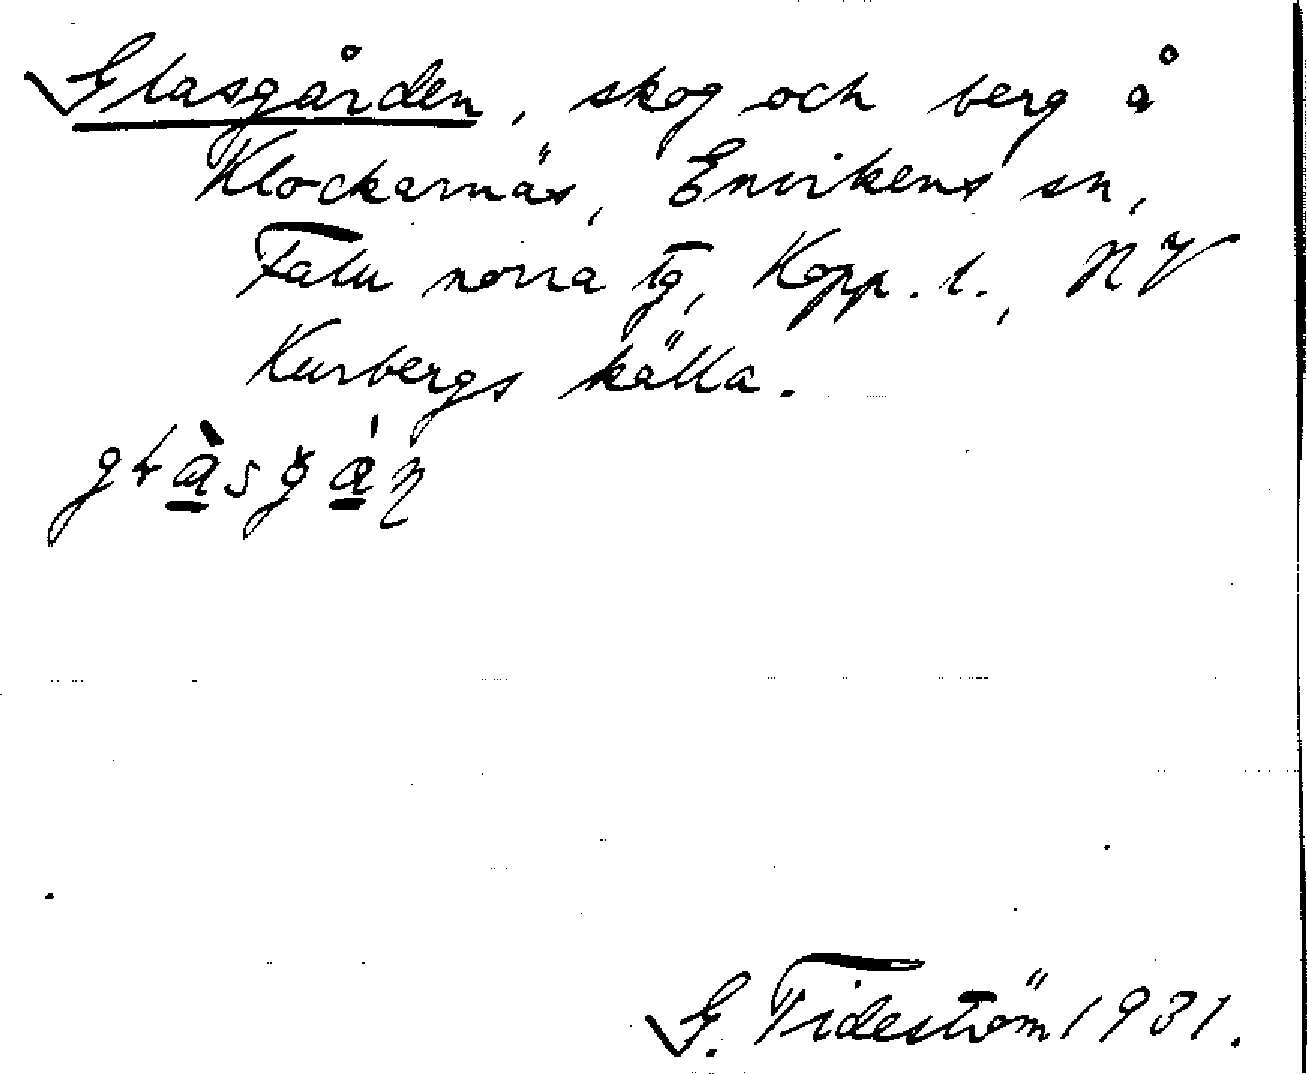 Glasgården, skog och berg å
Klockarnäs, Envikens sn,
Falu norra tg, Kopp. l., NV
Kursbergs källa.
G. Tideström 1931.